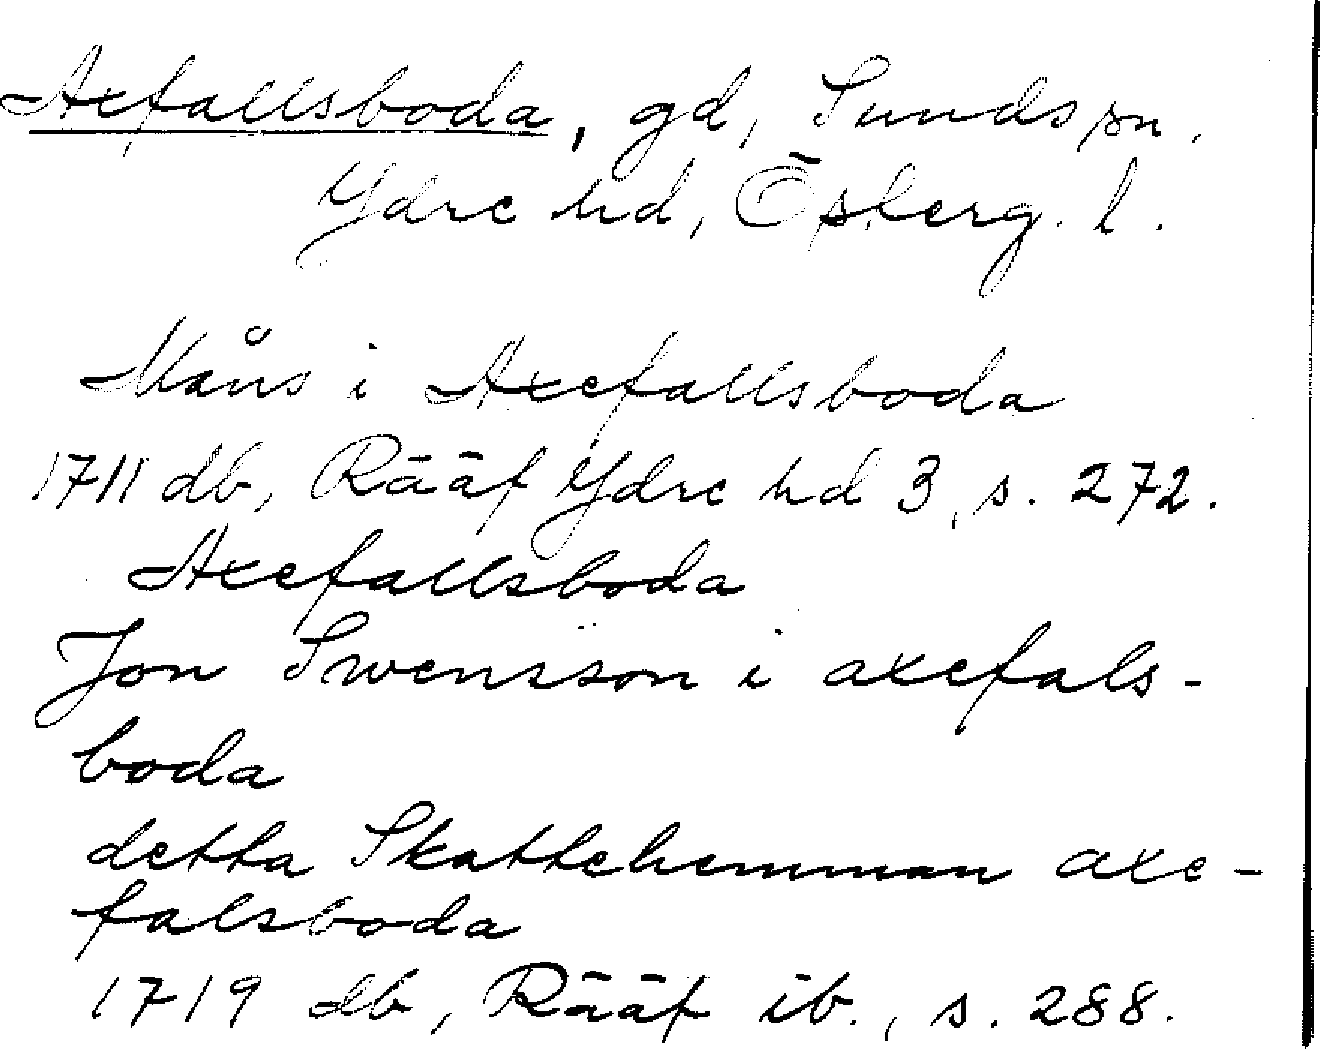 Axfallsboda, gd, Sunds sn.
Ydre hd, Österg. l.
Måns i Axefallsboda
1711 db, Rääf Ydre hd 3, s. 272.
Axefallsboda
Jon Swensson i axefals-
boda
detta Skattehemman axe-
falsboda
1719 db, Rääf ib., s. 288.